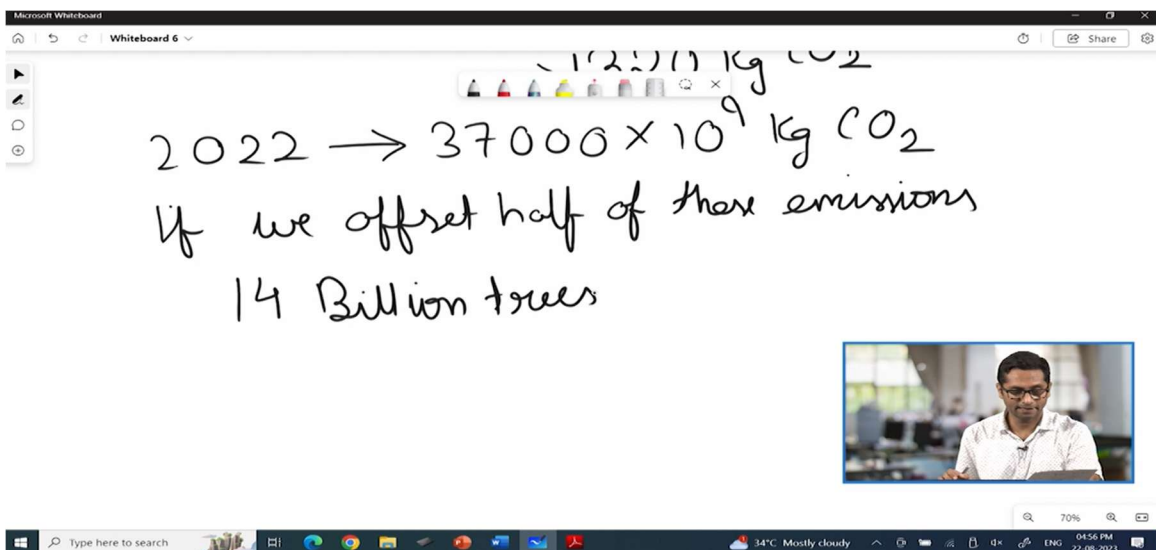 Microsoft Whiteboard
Whiteboard 6
Share
Kg CO2
2022 → 37000 × 10⁹ Kg CO2
If we offset half of these emissions
14 Billion trees
70%
Type here to search
34°C Mostly cloudy
ENG
04:56 PM
22-08-2023